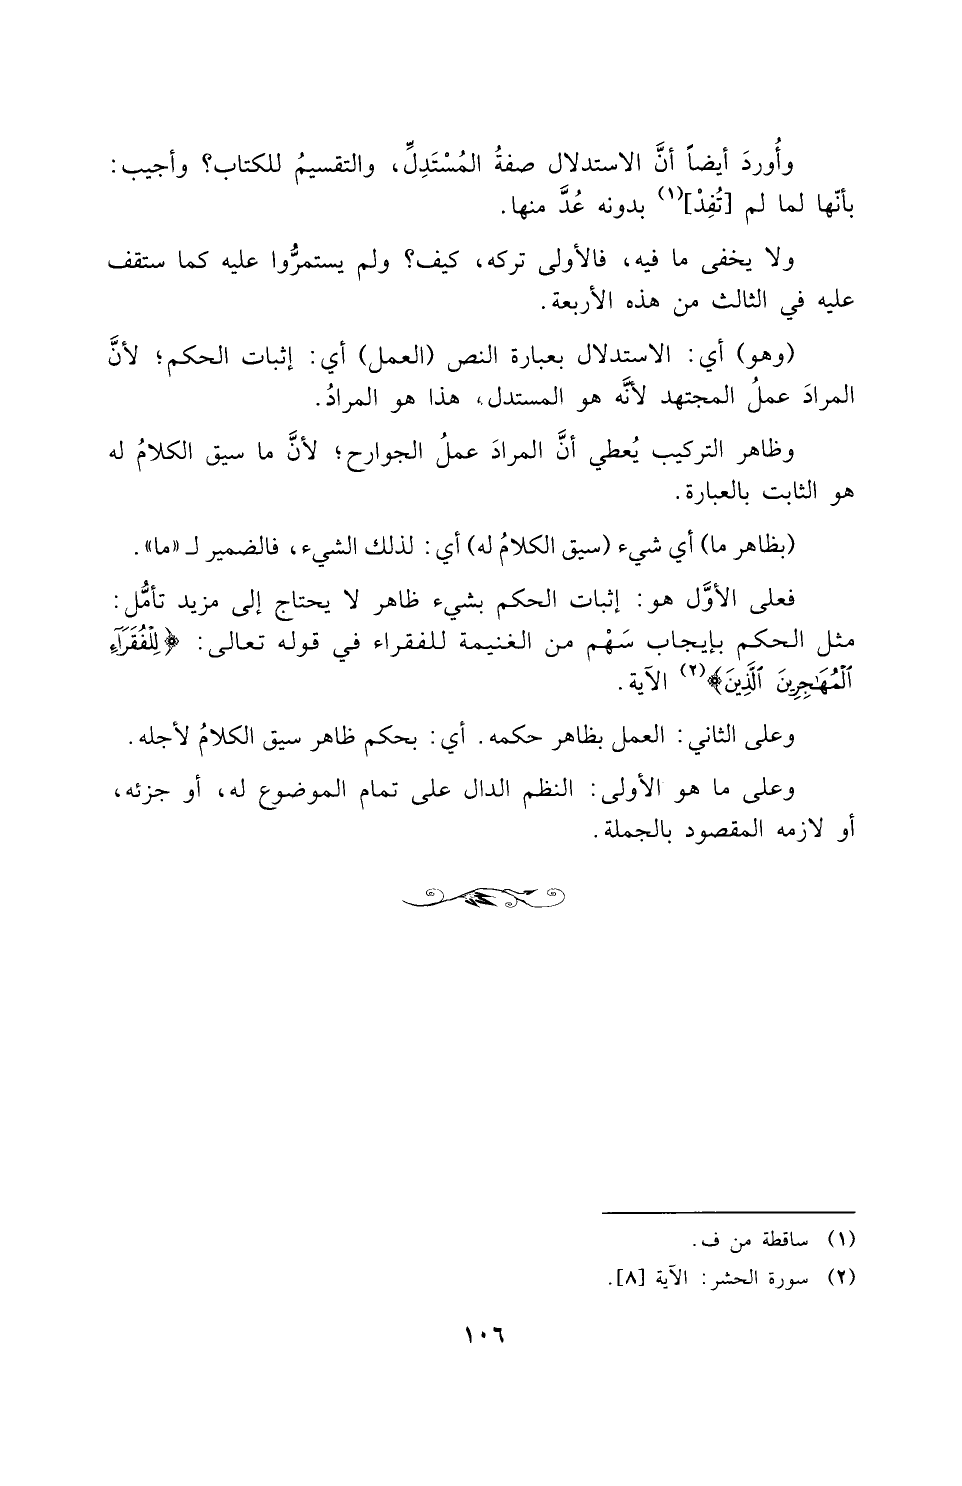 وأُوردَ أيضاً أنَّ الاستدلال صفةُ المُسْتَدِلِّ، والتقسيمُ للكتاب؟ وأجيب:
بأنّها لما لم [تُفِدْ]⁽¹⁾ بدونه عُدَّ منها.
ولا يخفى ما فيه، فالأولى تركه، كيف؟ ولم يستمرُّوا عليه كما ستقف
عليه في الثالث من هذه الأربعة.
(وهو) أي: الاستدلال بعبارة النص (العمل) أي: إثبات الحكم؛ لأنَّ
المرادَ عملُ المجتهد لأنَّه هو المستدل، هذا هو المرادُ.
وظاهر التركيب يُعطي أنَّ المرادَ عملُ الجوارح؛ لأنَّ ما سيق الكلامُ له
هو الثابت بالعبارة.
(بظاهر ما) أي شيء (سيق الكلامُ له) أي: لذلك الشيء، فالضمير لـ «ما».
فعلى الأوَّل هو: إثبات الحكم بشيء ظاهر لا يحتاج إلى مزيد تأمُّل:
مثل الحكم بإيجاب سَهْم من الغنيمة للفقراء في قوله تعالى: ﴿لِلْفُقَرَآءِ
ٱلْمُهَـٰجِرِينَ ٱلَّذِينَ﴾(٢) الآية.
وعلى الثاني: العمل بظاهر حكمه. أي: بحكم ظاهر سيق الكلامُ لأجله.
وعلى ما هو الأولى: النظم الدال على تمام الموضوع له، أو جزئه،
أو لازمه المقصود بالجملة.
(١) ساقطة من ف.
(٢) سورة الحشر: الآية [٨].
١٠٦